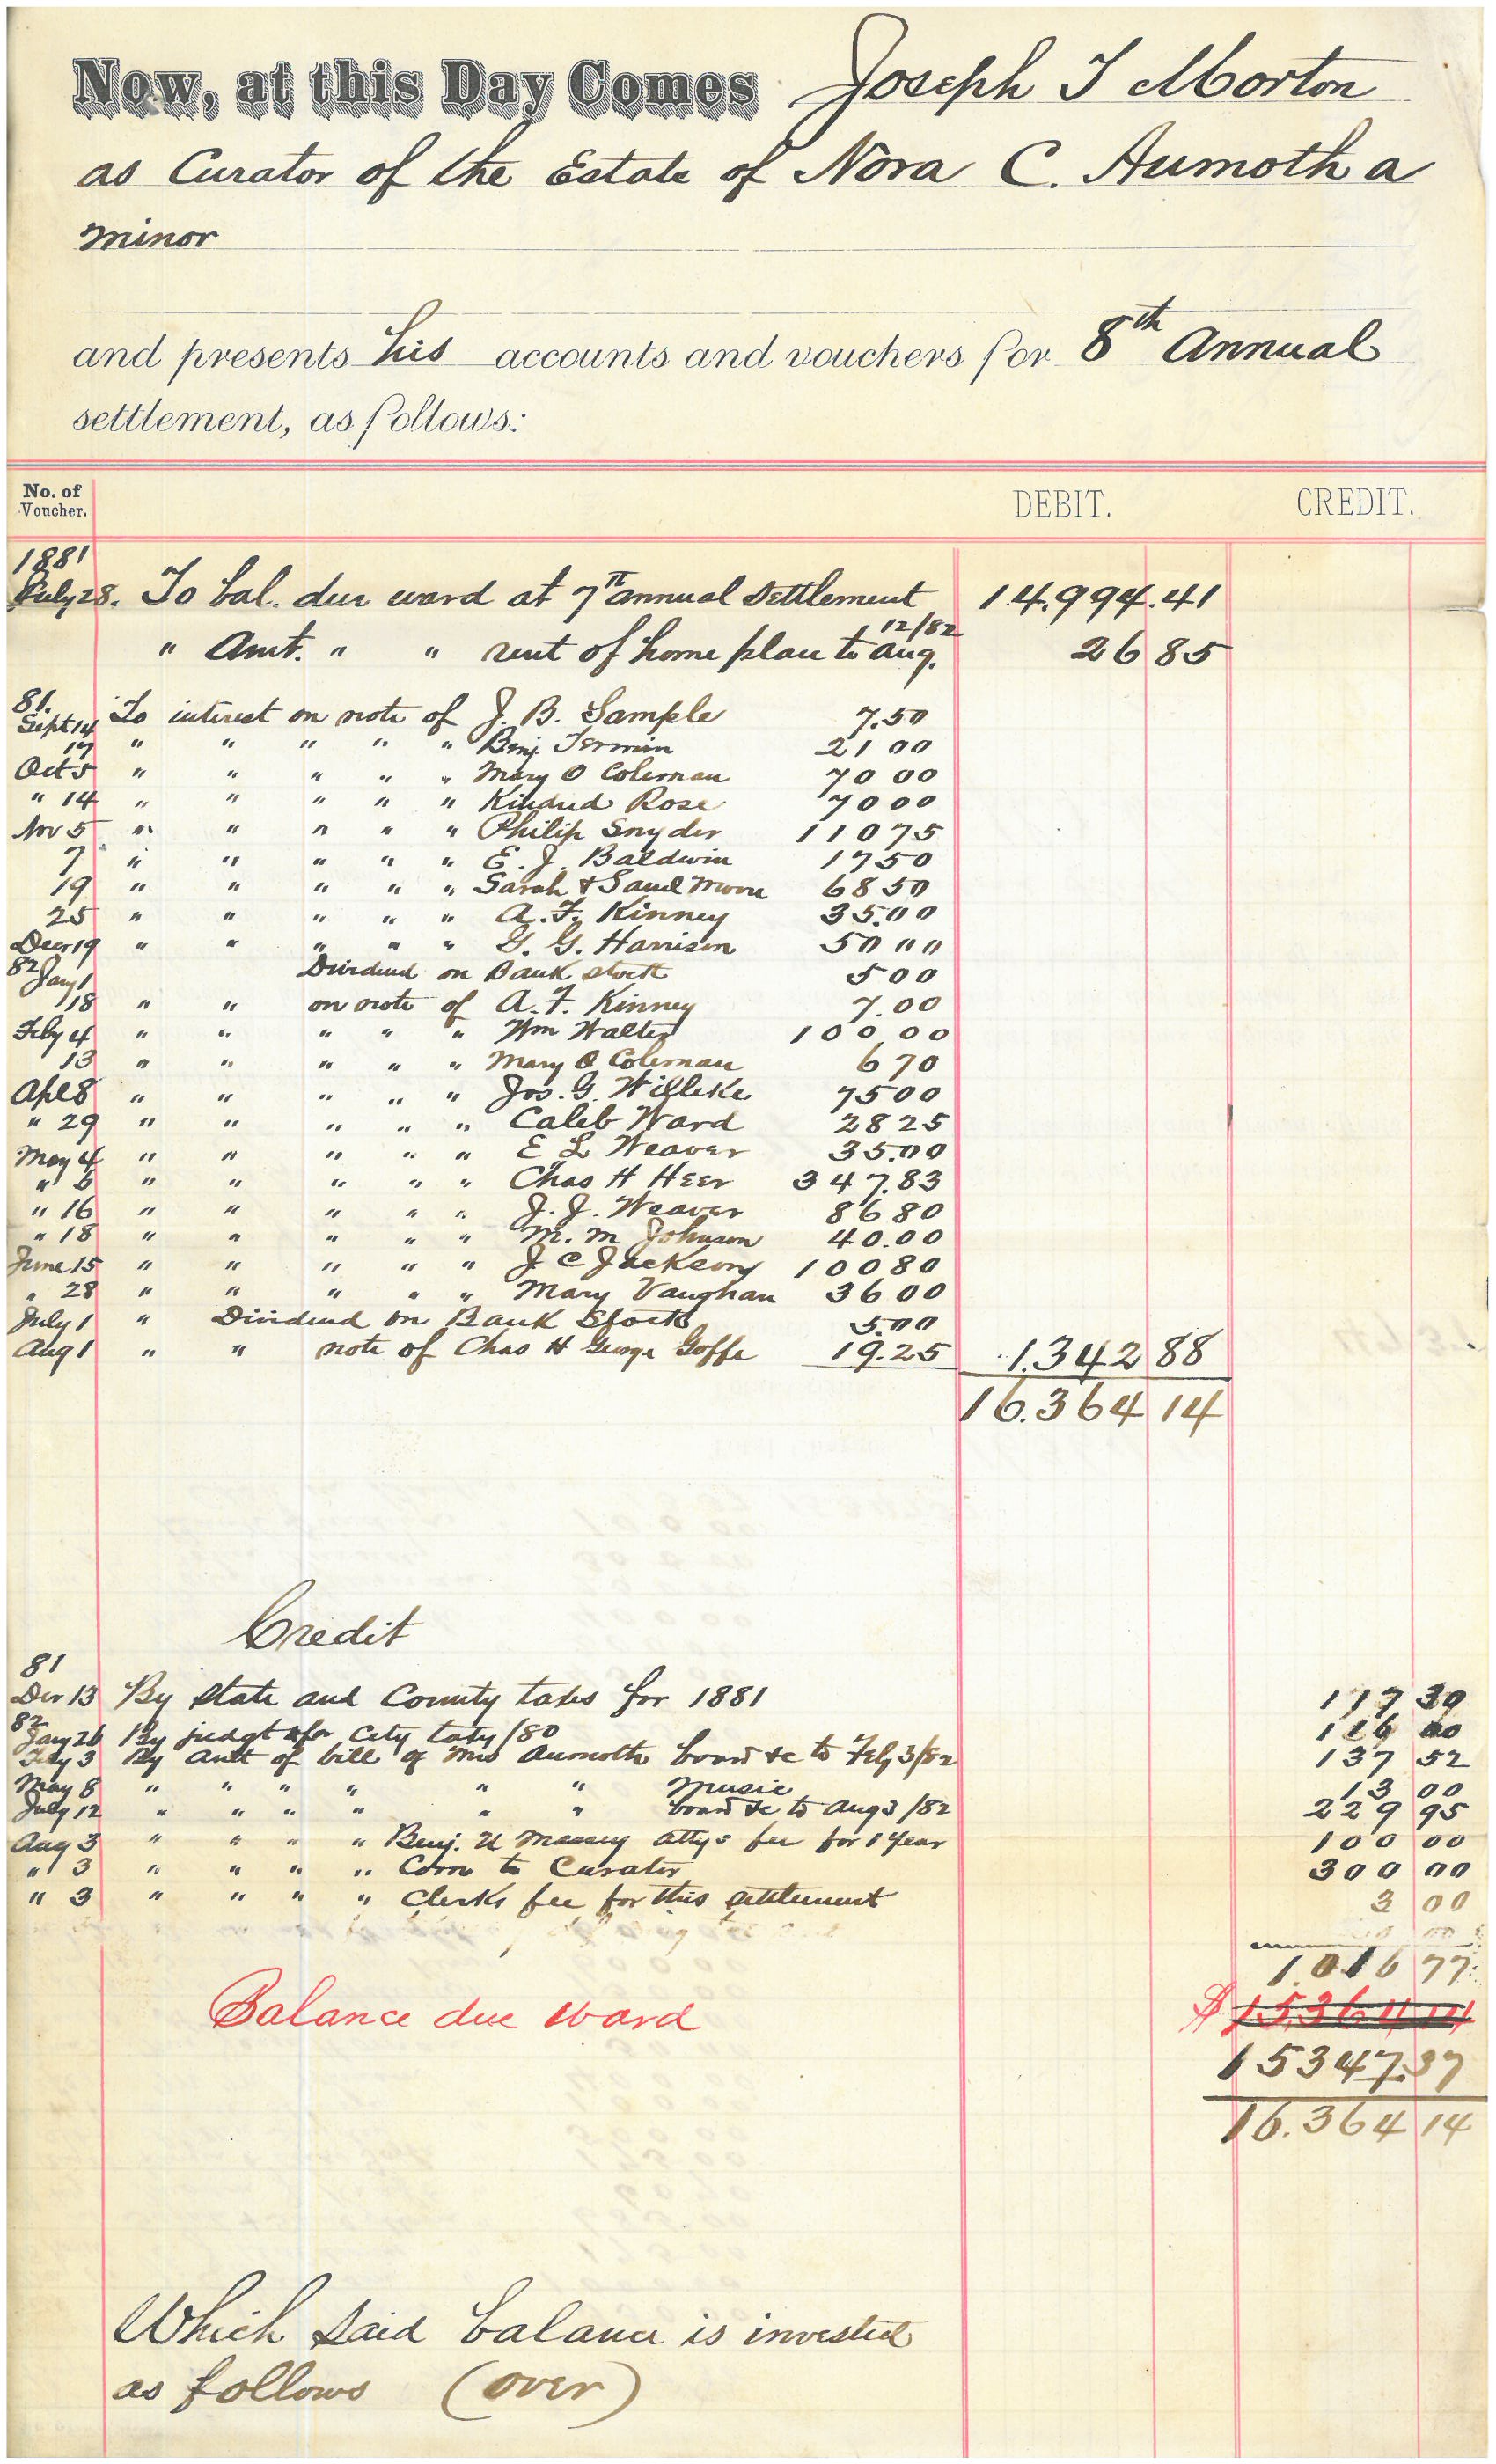 Now, at this Day Comes Joseph T Morton
as Curator of the Estate of Nora C. Aumoth a
minor
and presents his accounts and vouchers for 8th Annual
settlement, as follows:
No. of Voucher. DEBIT. CREDIT.
1881
July 28. To bal. due ward at 7th annual Settlement 14.994.41
" Amt. " " rent of home place to Aug. 12/82 26 85
81.
Sept 14 To interest on note of J. B. Sample 7.50
17 " " " " " Benj 21 00
Oct 5 " " " " " Mary O Coleman 70 00
" 14 " " " " " Kindred Rose 70 00
Nov 5 " " " " " Philip Snyder 110 75
7 " " " " " E. J. Baldwin 17 50
19 " " " " " Sarah & Saml Moore 68 50
25 " " " " " A. F. Kinney 35.00
Decr 19 " " " " " G. G. Harrison 50 00
82 Jany 1 Dividend on Bank stock 5 00
18 " " on note of A. F. Kinney 7.00
Feby 4 " " " " " Wm Walter 100 00
13 " " " " " Mary O Coleman 6 70
Apl 8 " " " " " Jos. G. Willeke 75 00
" 29 " " " " " Caleb Ward 28 25
May 4 " " " " " E L Weaver 35.00
" 6 " " " " " Chas H Heer 347.83
" 16 " " " " " J. J. Weaver 86 80
" 18 " " " " " M. M Johnson 40.00
June 15 " " " " " J C Jackson 100 80
" 28 " " " " " Mary Vaughan 36 00
July 1 " Dividend on Bank Stock 5.00
Aug 1 " " note of Chas H George Goffe 19.25 1.342 88
16.364 14
Credit
81
Der 13 By State and County taxes for 1881 117 30
82
Jany 26 By judgt for City taxes /80 116 00
Feby 3 By amt of bill of Mrs Aumoth board &c to Feby 3/82 137 52
May 8 " " " " " " Music 13 00
July 12 " " " " " " board &c to Aug 3/82 229 95
Aug 3 " " " " Benj. U Massey attys fee for 1 Year 100 00
" 3 " " " " Com to Curator 300 00
" 3 " " " " Clerks fee for this settlement 3 00
1.016 77
Balance due Ward $ 15.364 14
15347.37
16.364 14
Which said balance is invested
as follows (over)